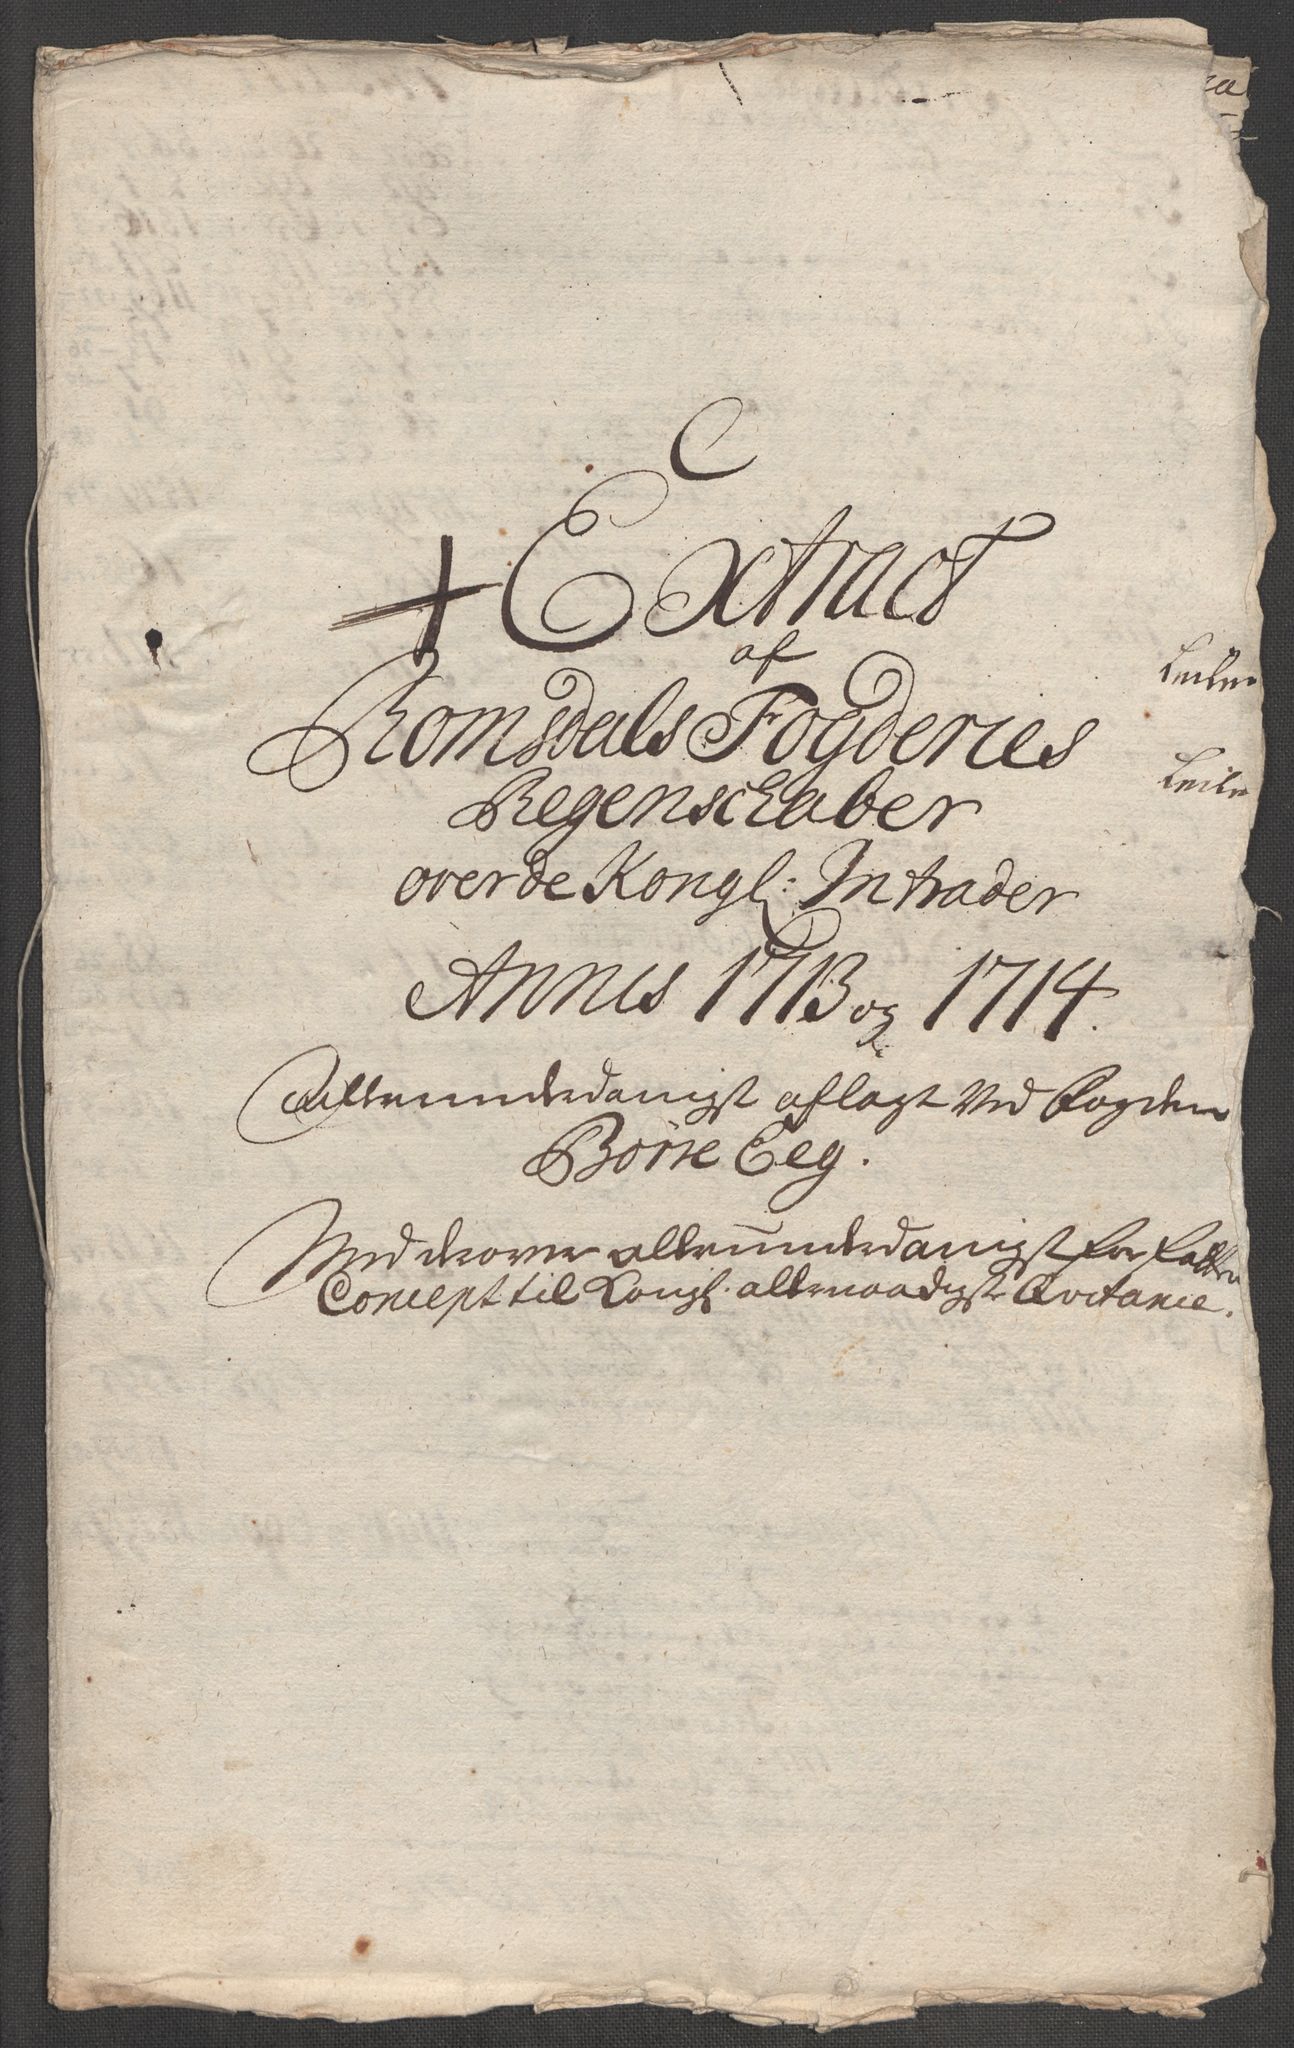 C
+ Extract
af
Romsdals Fogderies
Regenschaber
over de Kongl: Intrader
Annis 1713 og 1714.
Allerunderdanigst aflagt Ved Fogden
Børre Eeg.
Med derover allerunderdanigst for fatted
Concept til Kongl. allernaadigste Qvitance.